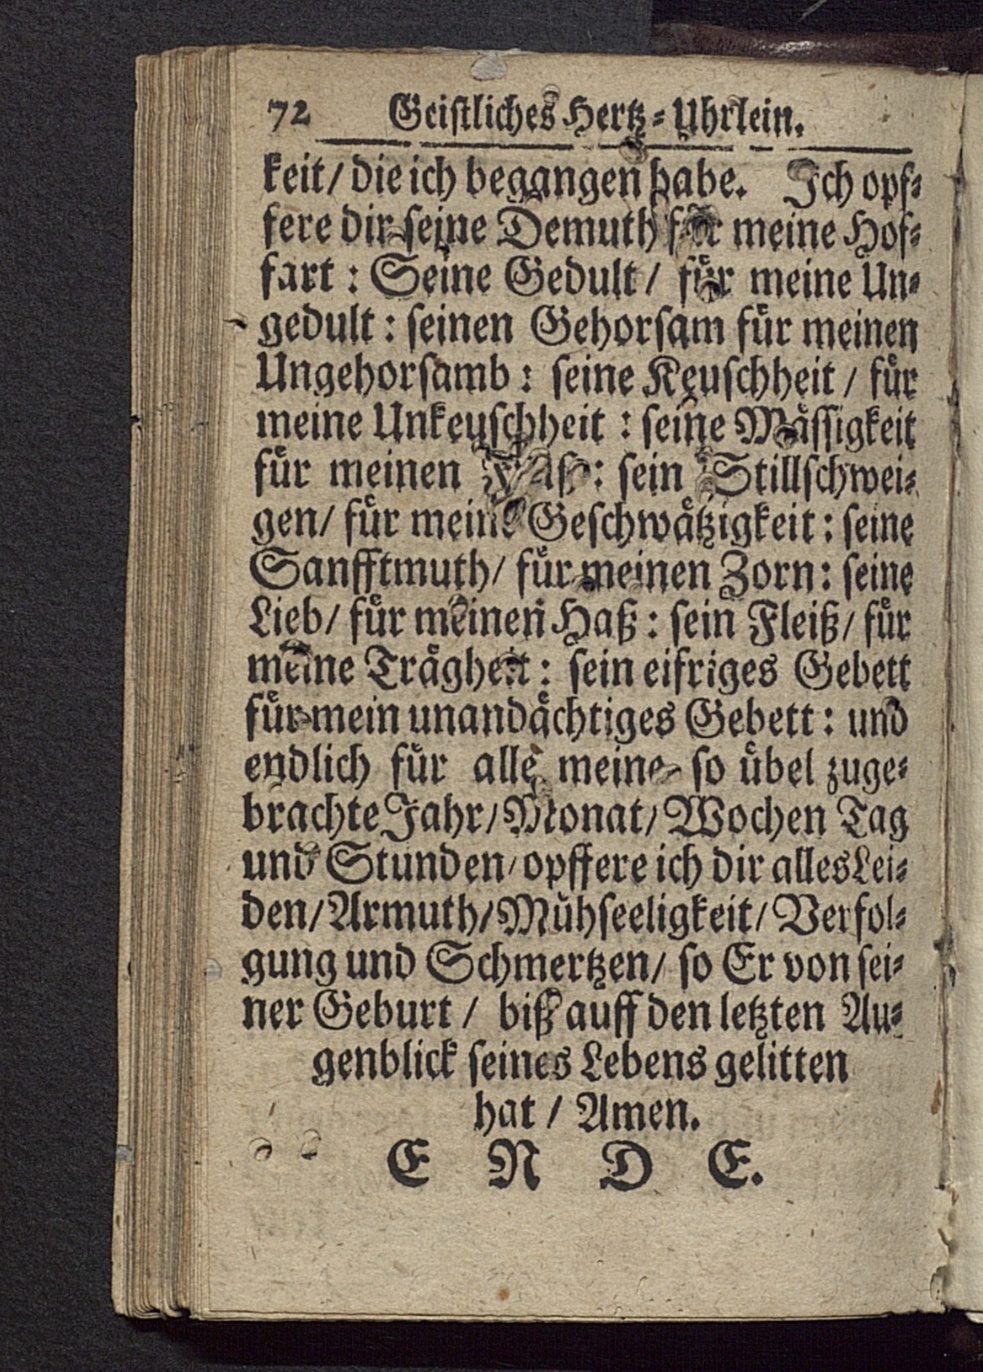 72 Geistliches Hertz-Uhrlein.
keit/ die ich begangen habe. Ich opf-
fere dir seine Demuth für meine Hof-
fart: Seine Gedult/ für meine Un-
gedult: seinen Gehorsam für meinen
Ungehorsamb: seine Keuschheit/ für
meine Unkeuschheit: seine Mässigkeit
für meinen Fraß: sein Stillschwei-
gen/ für meine Geschwätzigkeit: seine
Sanfftmuth/ für meinen Zorn: seine
Lieb/ für meinen Haß: sein Fleiß/ für
meine Trägheit: sein eifriges Gebett
für mein unandächtiges Gebett: und
endlich für alle meine so übel zuge-
brachte Jahr/ Monat/ Wochen Tag
und Stunden/ opffere ich dir alles Lei-
den/ Armuth/ Mühseeligkeit/ Verfol-
gung und Schmertzen/ so Er von sei-
ner Geburt/ biß auff den letzten Au-
genblick seines Lebens gelitten
hat/ Amen.
E N D E.